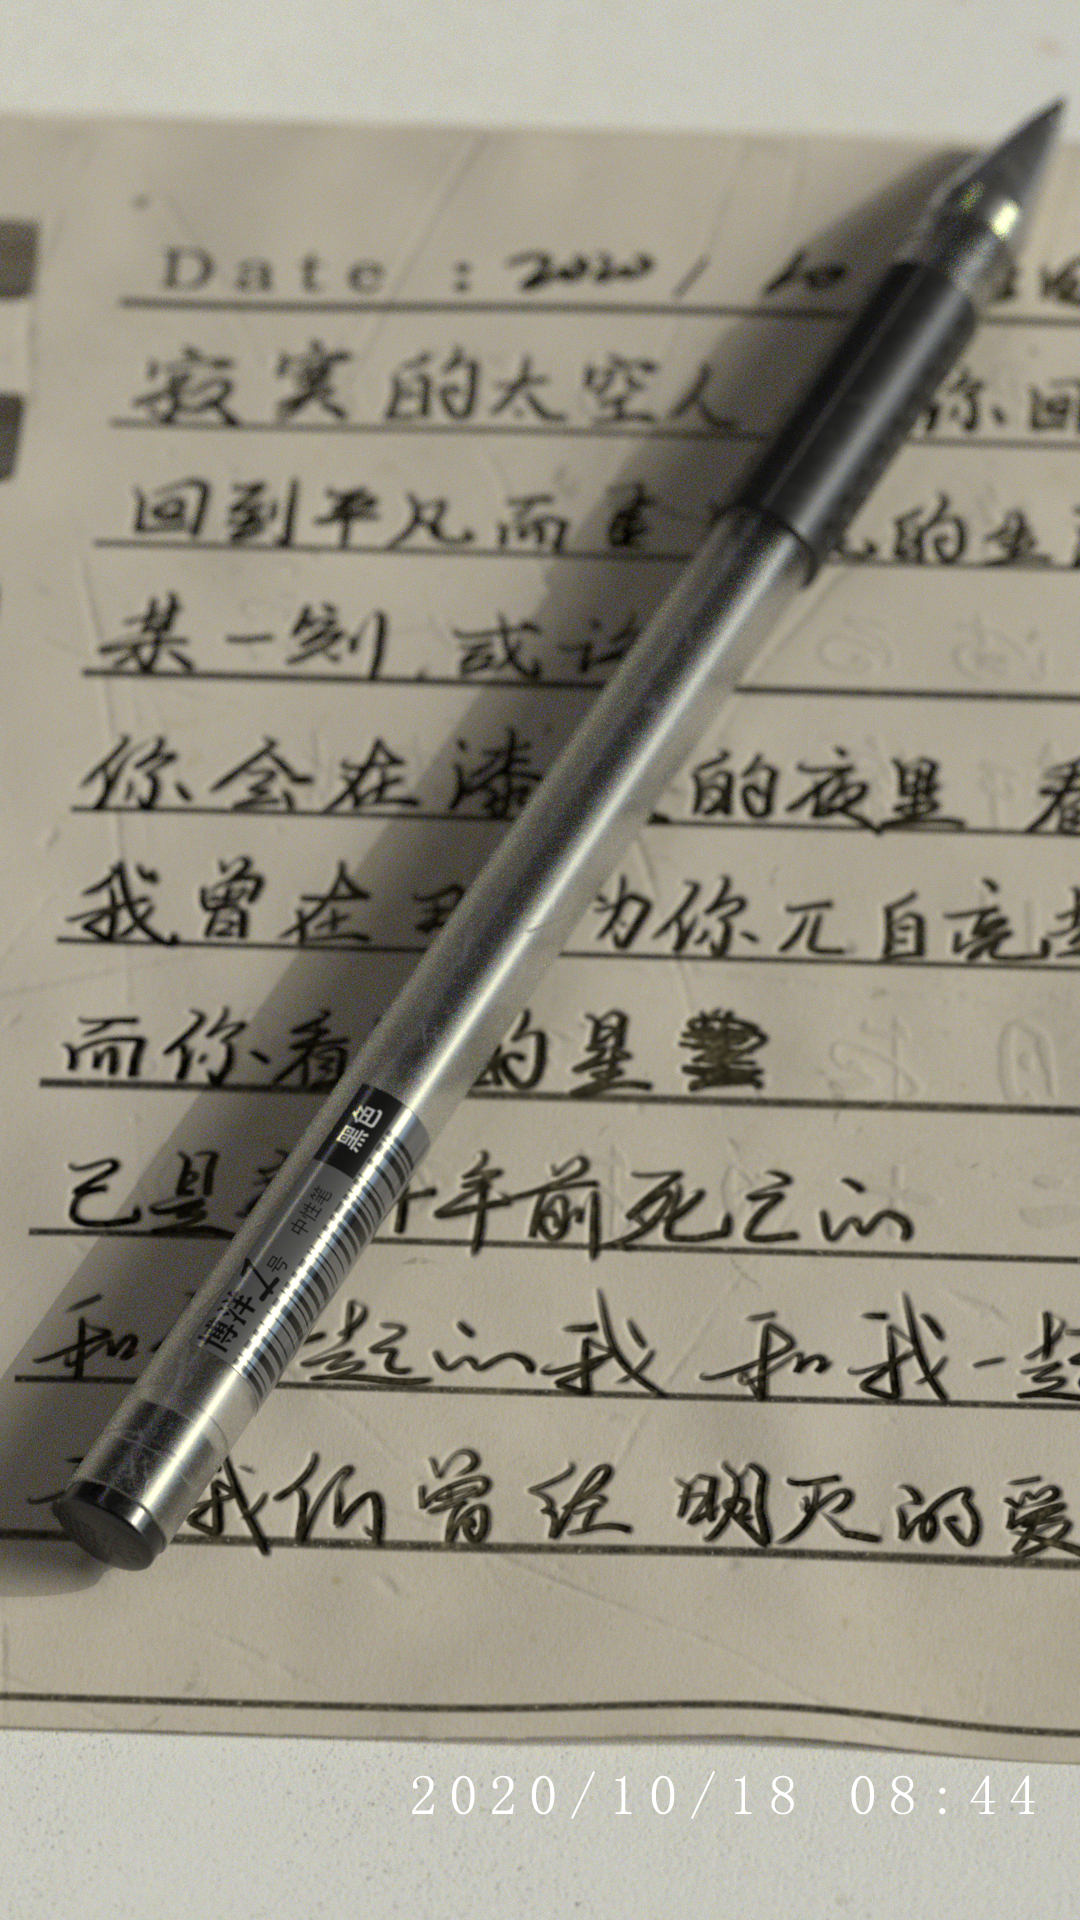 Date : 2020 / 10
寂寞的太空人 你回
回到平凡而 的生
某一刻,或许
你会在漆 的夜里 看
我曾在 为你兀自亮
而你看 的星
已是 年前死之的
和 一起的我 和我一起
我们曾经明灭的爱
黑色
中性笔
博特7号
2020/10/18 08:44